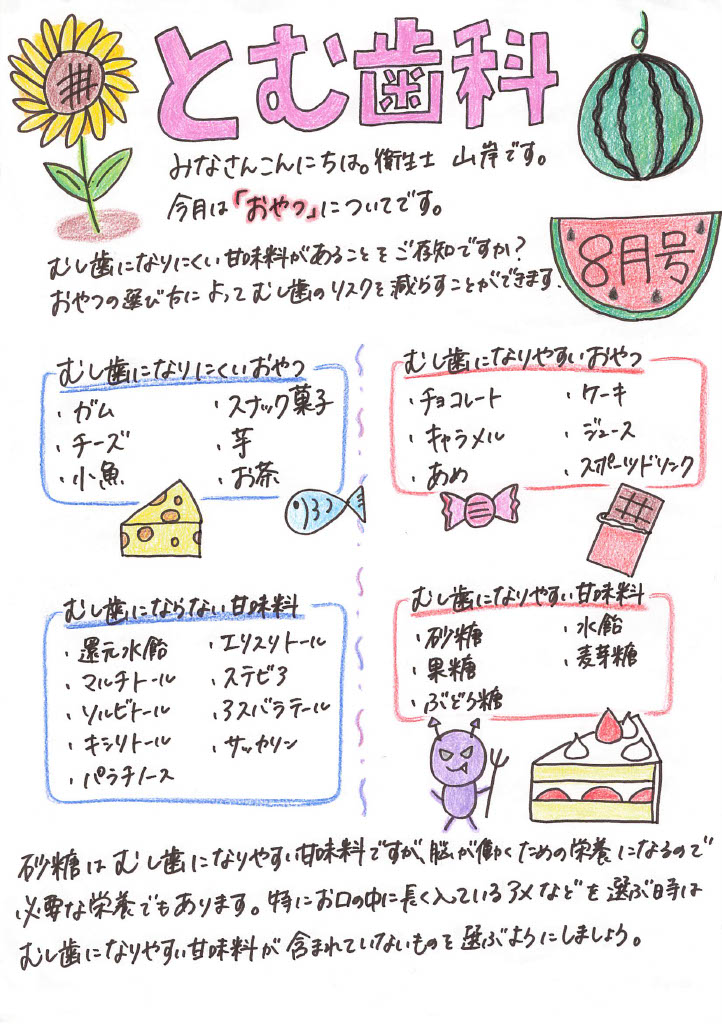 とむ歯科
みなさんこんにちは。衛生士 山岸です。
今月は「おやつ」についてです。
8月号
むし歯になりにくい甘味料があることをご存知ですか?
おやつの選び方によってむし歯のリスクを減らすことができます。
むし歯になりにくいおやつ
・ガム
・チーズ
・小魚
・スナック菓子
・芋
・お茶
むし歯になりやすいおやつ
・チョコレート
・キャラメル
・あめ
・ケーキ
・ジュース
・スポーツドリンク
むし歯にならない甘味料
・還元水飴
・マルチトール
・ソルビトール
・キシリトール
・パラチノース
・エリスリトール
・ステビア
・アスパラテール
・サッカリン
むし歯になりやすい甘味料
・砂糖
・果糖
・ぶどう糖
・水飴
・麦芽糖
砂糖はむし歯になりやすい甘味料ですが、脳が働くための栄養になるので
必要な栄養でもあります。特にお口の中に長く入っているアメなどを選ぶ時は
むし歯になりやすい甘味料が含まれていないものを選ぶようにしましょう。